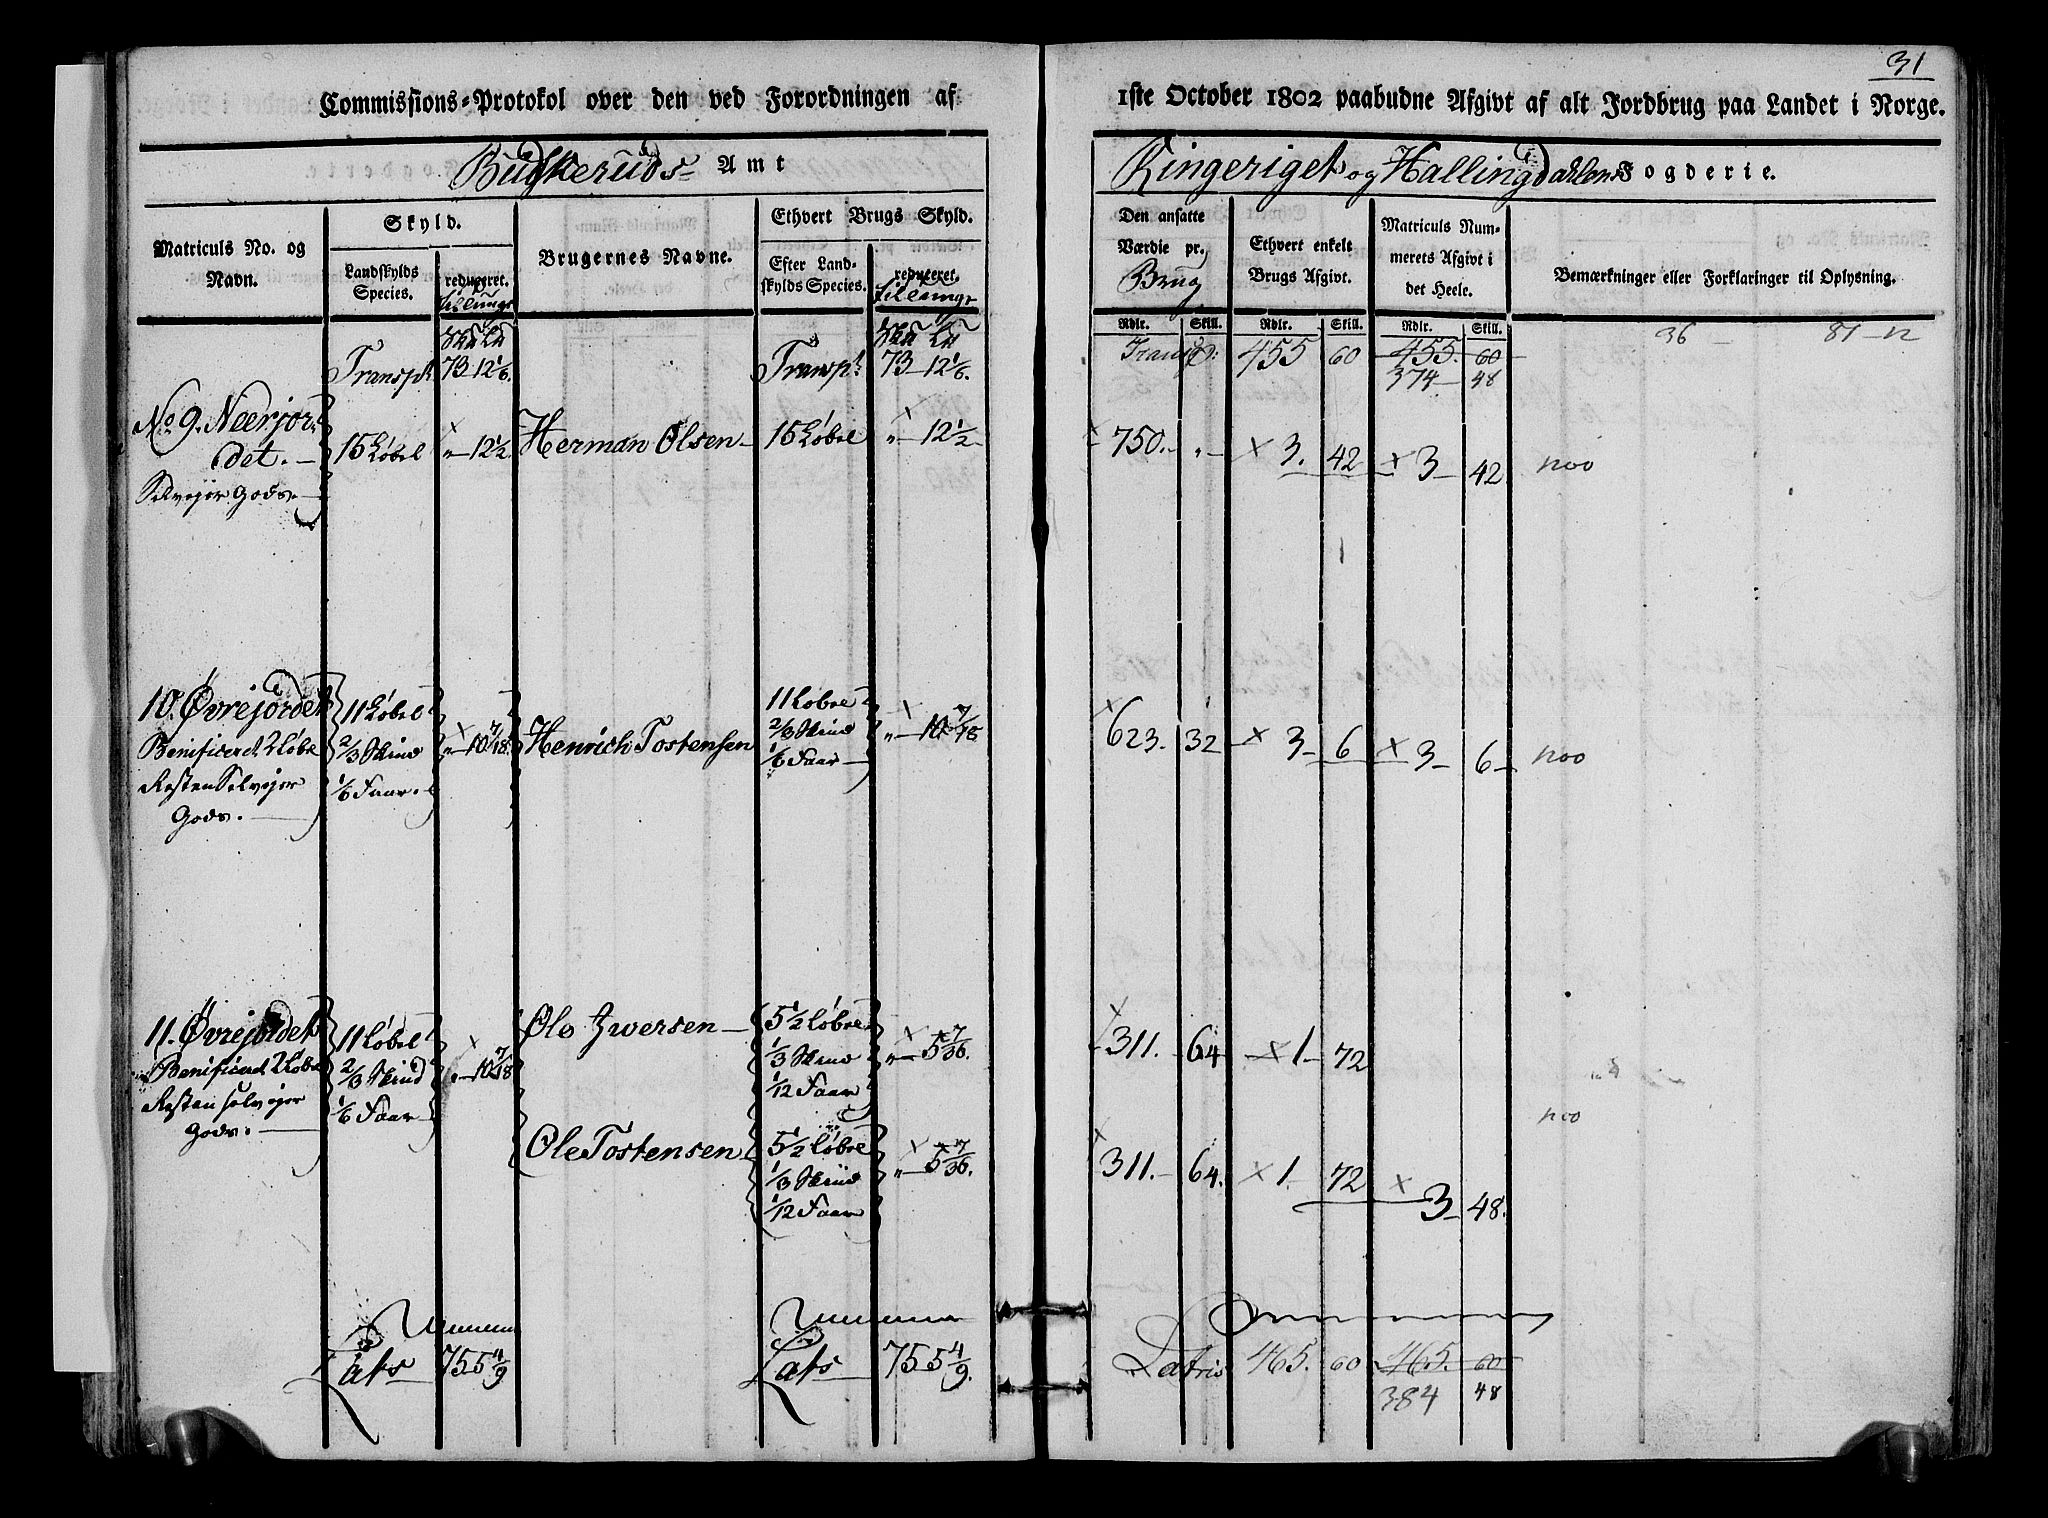 31
Commissions-Protokol over den ved Forordningen af
1ste October 1802 paabudne Afgivt af alt Jordbrug paa Landet i Norge.
Budskeruds Amt
Ringeriget og Hallingdahlens Fogderie.
Matriculs No. og Navn.
Skyld.
Landskylds Species.
reduceret.
Brugernes Navne.
Ethvert Brugs Skyld.
Efter Landskylds Species.
reduceret.
Den ansatte Værdie pr. Brug
Ethvert enkelt Brugs Afgivt.
Matriculs Nummerets Afgivt i det Heele.
Bemærkninger eller Forklaringer til Oplysning.
Rdlr. Skill. Rdlr. Skill. Rdlr. Skill.
Transpt 73 - 12 1/6. Transpt. 73 - 12 1/6. Transp: 455 60 455. 60 36 81 - 12
374 48
No 9. Neerjor-
det. 15 Løbel „ - 12 1/2. Herman Olsen 15 Løbel „ - 12 1/2 750. „ 3. 42 3 42 noo
Selvejer Gods.
10. Øvrejordet 11 Løbel 11 Løbel
Benificeret 2 Løbe 2/3 Skind „ - 10 7/18. Henrich Tostensen 2/3 Skind „ - 10 7/18 623. 32 3 6 3 6 noo
Resten Selvejer 1/6 Faar. 1/6 Faar
Gods.
11. Øvrejordet 11 Løbel Ole Iwersen 5 1/2 Løbel
Benificeret 2 Løbe 2/3 Skind „ - 10 7/18 1/3 Skind „ - 5 7/36. 311. 64 1 72
Resten selvejer 1/6 Faar 1/12 Faar
Gods. noo
Ole Tostensen 5 1/2 Løbel
1/3 Skind „ - 5 7/36. 311. 64. 1. 72
1/12 Faar 3 48.
Lats 75 5 4/9 Lats 75 5 4/9. Latris 465. 60 465. 60
384 48